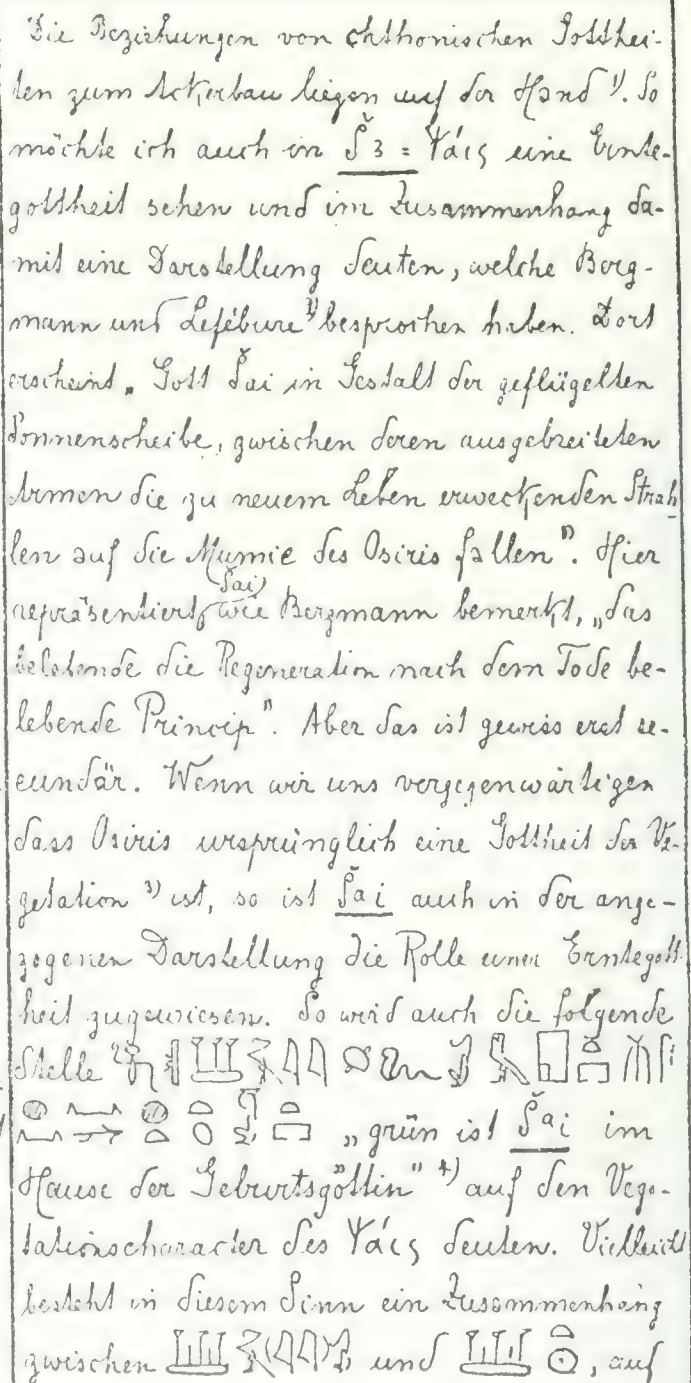 Die Beziehungen von chthonischen Gotthei-
ten zum Ackerbau liegen auf der Hand 1). So
möchte ich auch in Š3 = Ψάις eine Ernte-
gottheit sehen und im Zusammenhang da-
mit eine Darstellung deuten, welche Berg-
mann und Lefébure besprochen haben. Dort
erscheint „Gott Šai in Gestalt der geflügelten
Sonnenscheibe, zwischen deren ausgebreiteten
Armen die zu neuem Leben erweckenden Strah
len auf die Mumie des Osiris fallen". Hier
repräsentiert (Šai) wie Bergmann bemerkt, „das
belebende die Regeneration nach dem Tode be-
lebende Princip". Aber das ist gewiss erst se-
cundär. Wenn wir uns vergegenwärtigen
dass Osiris ursprünglich eine Gottheit der Ve-
getation 3) ist, so ist Šai auch in der ange-
zogenen Darstellung die Rolle einer Erntegott
heit zugewiesen. So wird auch die folgende
Stelle
„grün ist Šai im
Hause der Geburtsgöttin" 4) auf den Vege-
tationscharacter des Ψάις deuten. Vielleicht
besteht in diesem Sinn ein Zusammenhang
zwischen und , auf